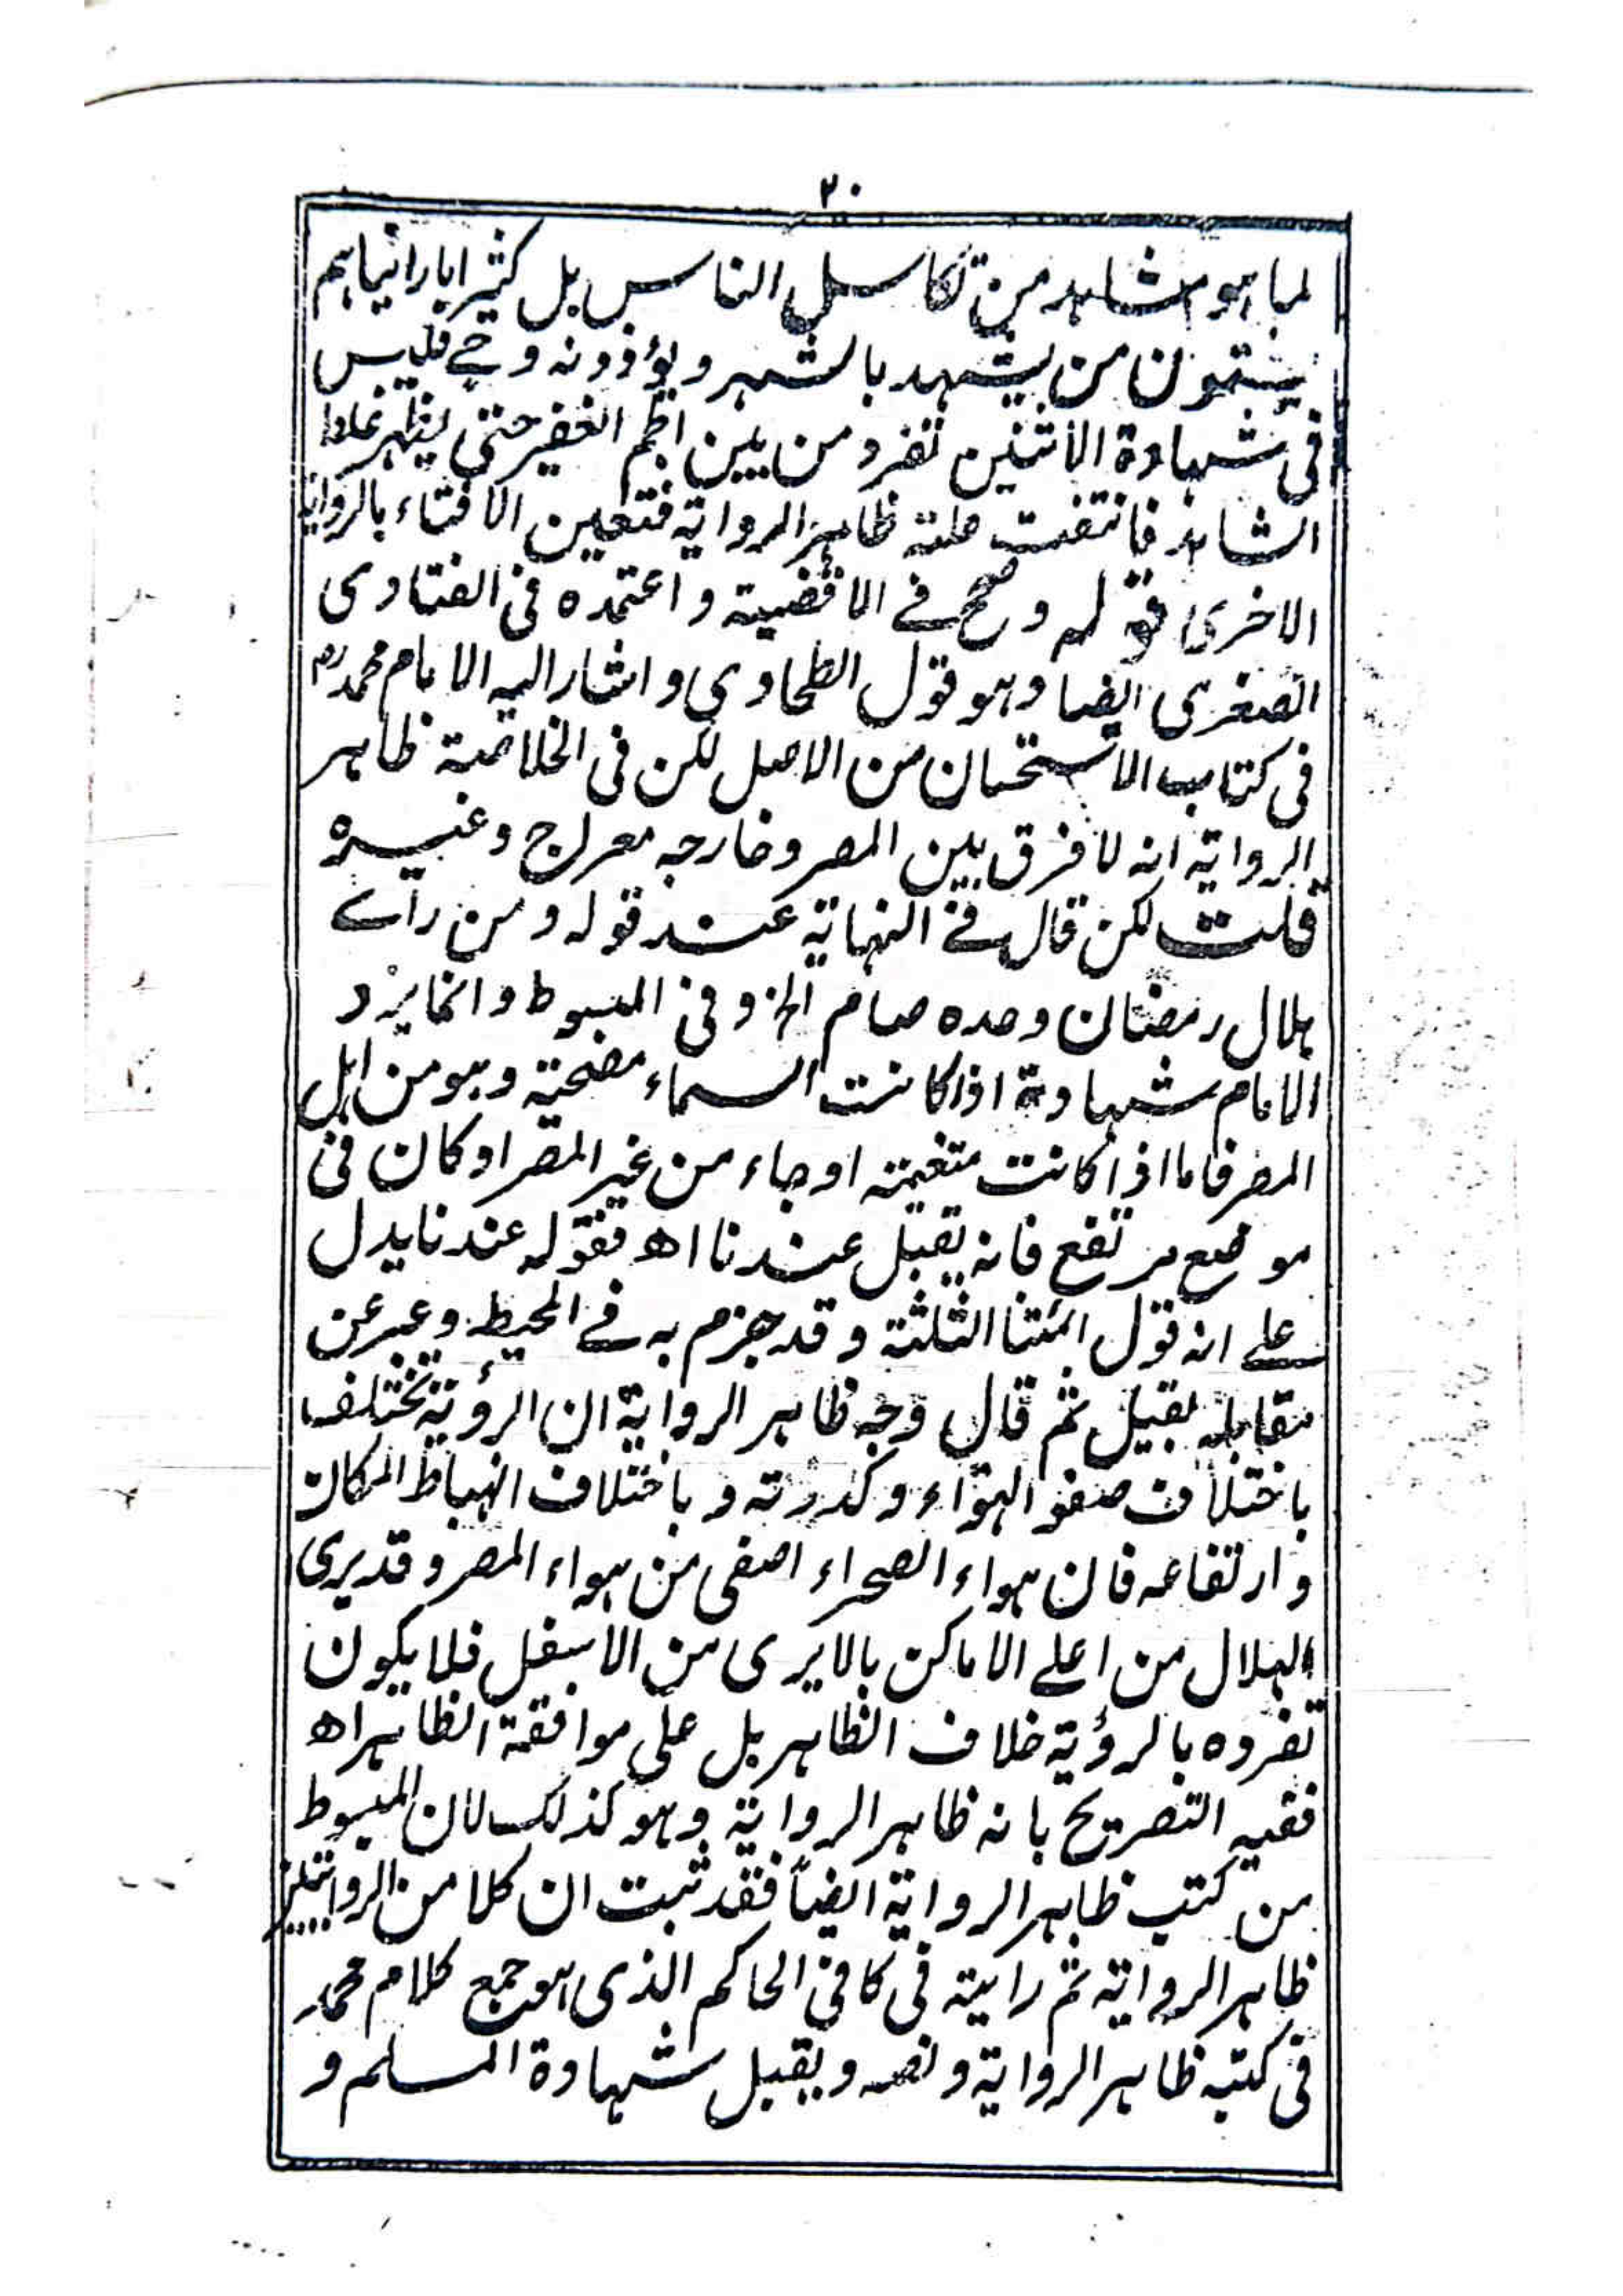 ٣٠
لما هو مشاهد من تكاسل الناس بل كثيرا ما رأيناهم
يشتمون من يشهد بالشهر ويؤذونه وح فليس
فى شهادة الاثنين تفرد من بين الجم الغفير حتى يظهر غلط
الشاهد فانتفت علته ظاهر الرواية فتعين الافتاء بالرواية
الاخرى قوله وصحح فے الاقضية واعتمده فى الفتاوى
الصغرى ايضا وهو قول الطحاوي واشار اليه الامام محمد رح
فى كتاب الاستحسان من الاصل لكن فى الخلاصة ظاهر
الرواية انه لا فرق بين المصر وخارجه معراج وغيره
قلت لكن قال فے النهاية عند قوله ومن راے
هلال رمضان وحده صام الخ وفى المبسوط وانما يرد
الامام شهادة اذا كانت السماء مضحية وهو من اهل
المصر فاما اذا كانت متغيمة او جاء من غير المصر او كان فى
موضع مرتفع فانه يقبل عندنا اھ فقوله عندنا يدل
علے انه قول ائمتنا الثلثة وقد جزم به فے المحيط وعبر عن
مقابله بقيل ثم قال وجه ظاهر الرواية ان الرؤية تختلف
باختلاف صفو الهواء وكدرته وباختلاف انهباط المكان
وارتفاعه فان هواء الصحراء اصفى من هواء المصر وقد يرى
الهلال من اعلے الاماكن مالا يرى من الاسفل فلا يكون
تفرده بالرؤية خلاف الظاهر بل على موافقة الظاهر اھ
ففيه التصريح بانه ظاهر الرواية وهو كذلك لان المبسوط
من كتب ظاهر الرواية ايضاً فقد ثبت ان كلا من الروايتين
ظاهر الرواية ثم رايته فى كافى الحاكم الذى هو جمع كلام محمد
فى كتبه ظاهر الرواية ونصه ويقبل شهادة المسلم و